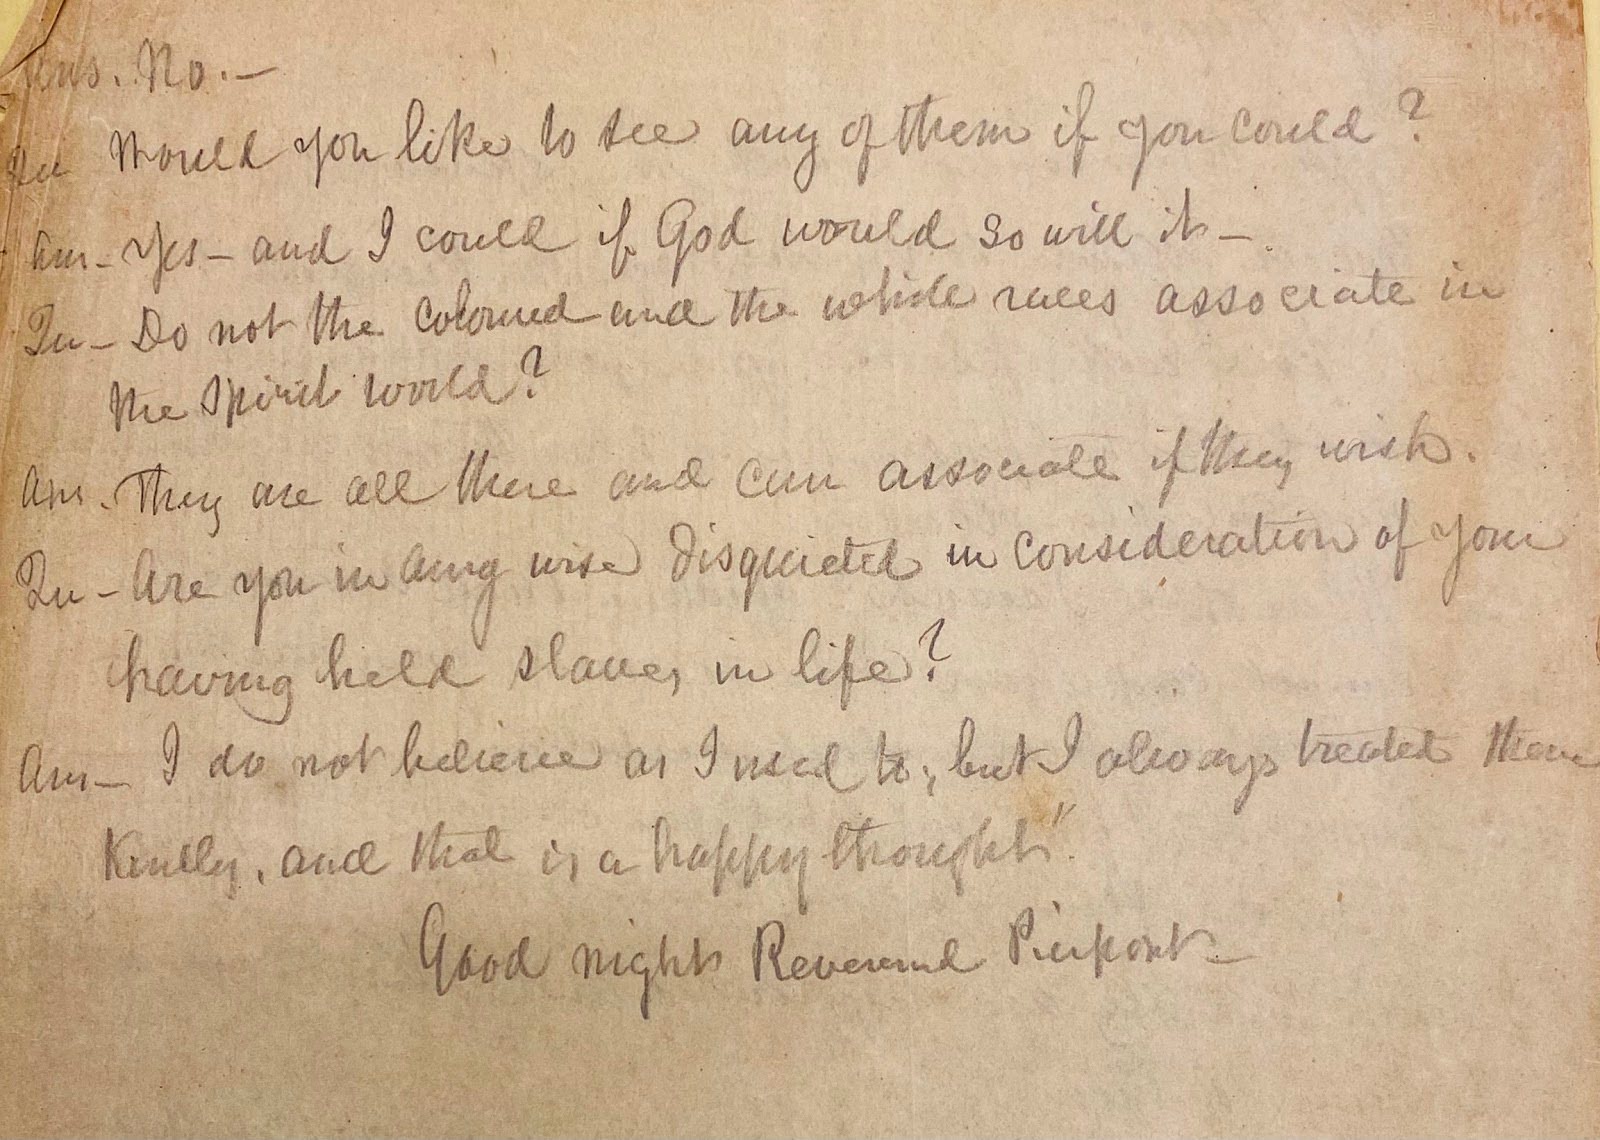 Ans. No. —
Qu Would you like to see any of them if you could?
Ans — Yes — and I could if God would so will it —
Qu — Do not the Colored and the white races associate in
the Spirit world?
Ans. They are all there and can associate if they wish.
Qu — Are you in any wise disquieted in consideration of your
having held slaves in life?
Ans — I do not believe as I used to; but I always treated them
Kindly, and that is a happy thought"
Good night Reverend Pierpont —